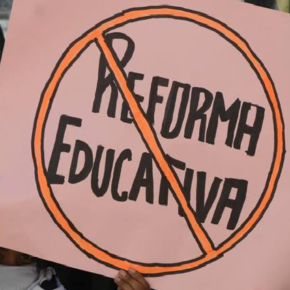 REFORMA
EDUCATIVA